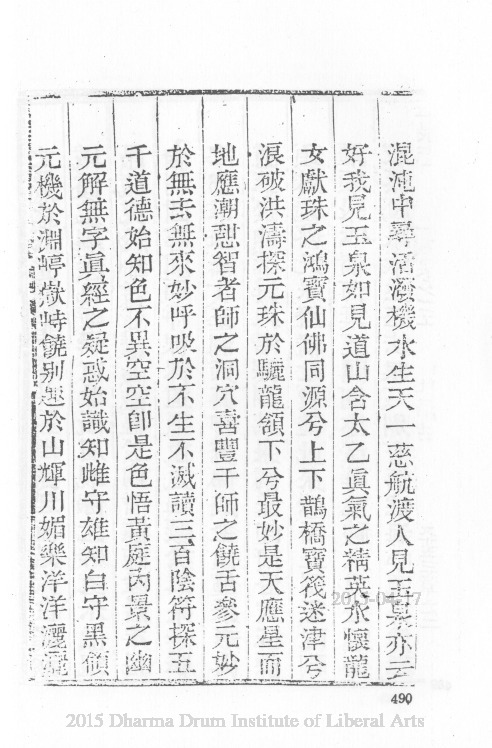 混沌中尋活潑機水生天一慈航渡人見玉泉亦云
好我見玉泉如見道山含太乙眞氣之精英水懷龍
女獻珠之鴻寶仙佛同源兮上下鵲橋寶筏迷津兮
浪破洪濤探元珠於驪龍頷下兮最妙是天應星而
地應潮憩智者師之洞穴喜豐干師之饒舌參元妙
於無去無來妙呼吸於不生不滅讀三百陰符探五
千道德始知色不異空空卽是色悟黃庭內景之幽
元解無字眞經之疑惑始識知雌守雄知白守黑領
元機於淵渟嶽峙饒別趣於山輝川媚樂洋洋灑灑
490
2015 Dharma Drum Institute of Liberal Arts